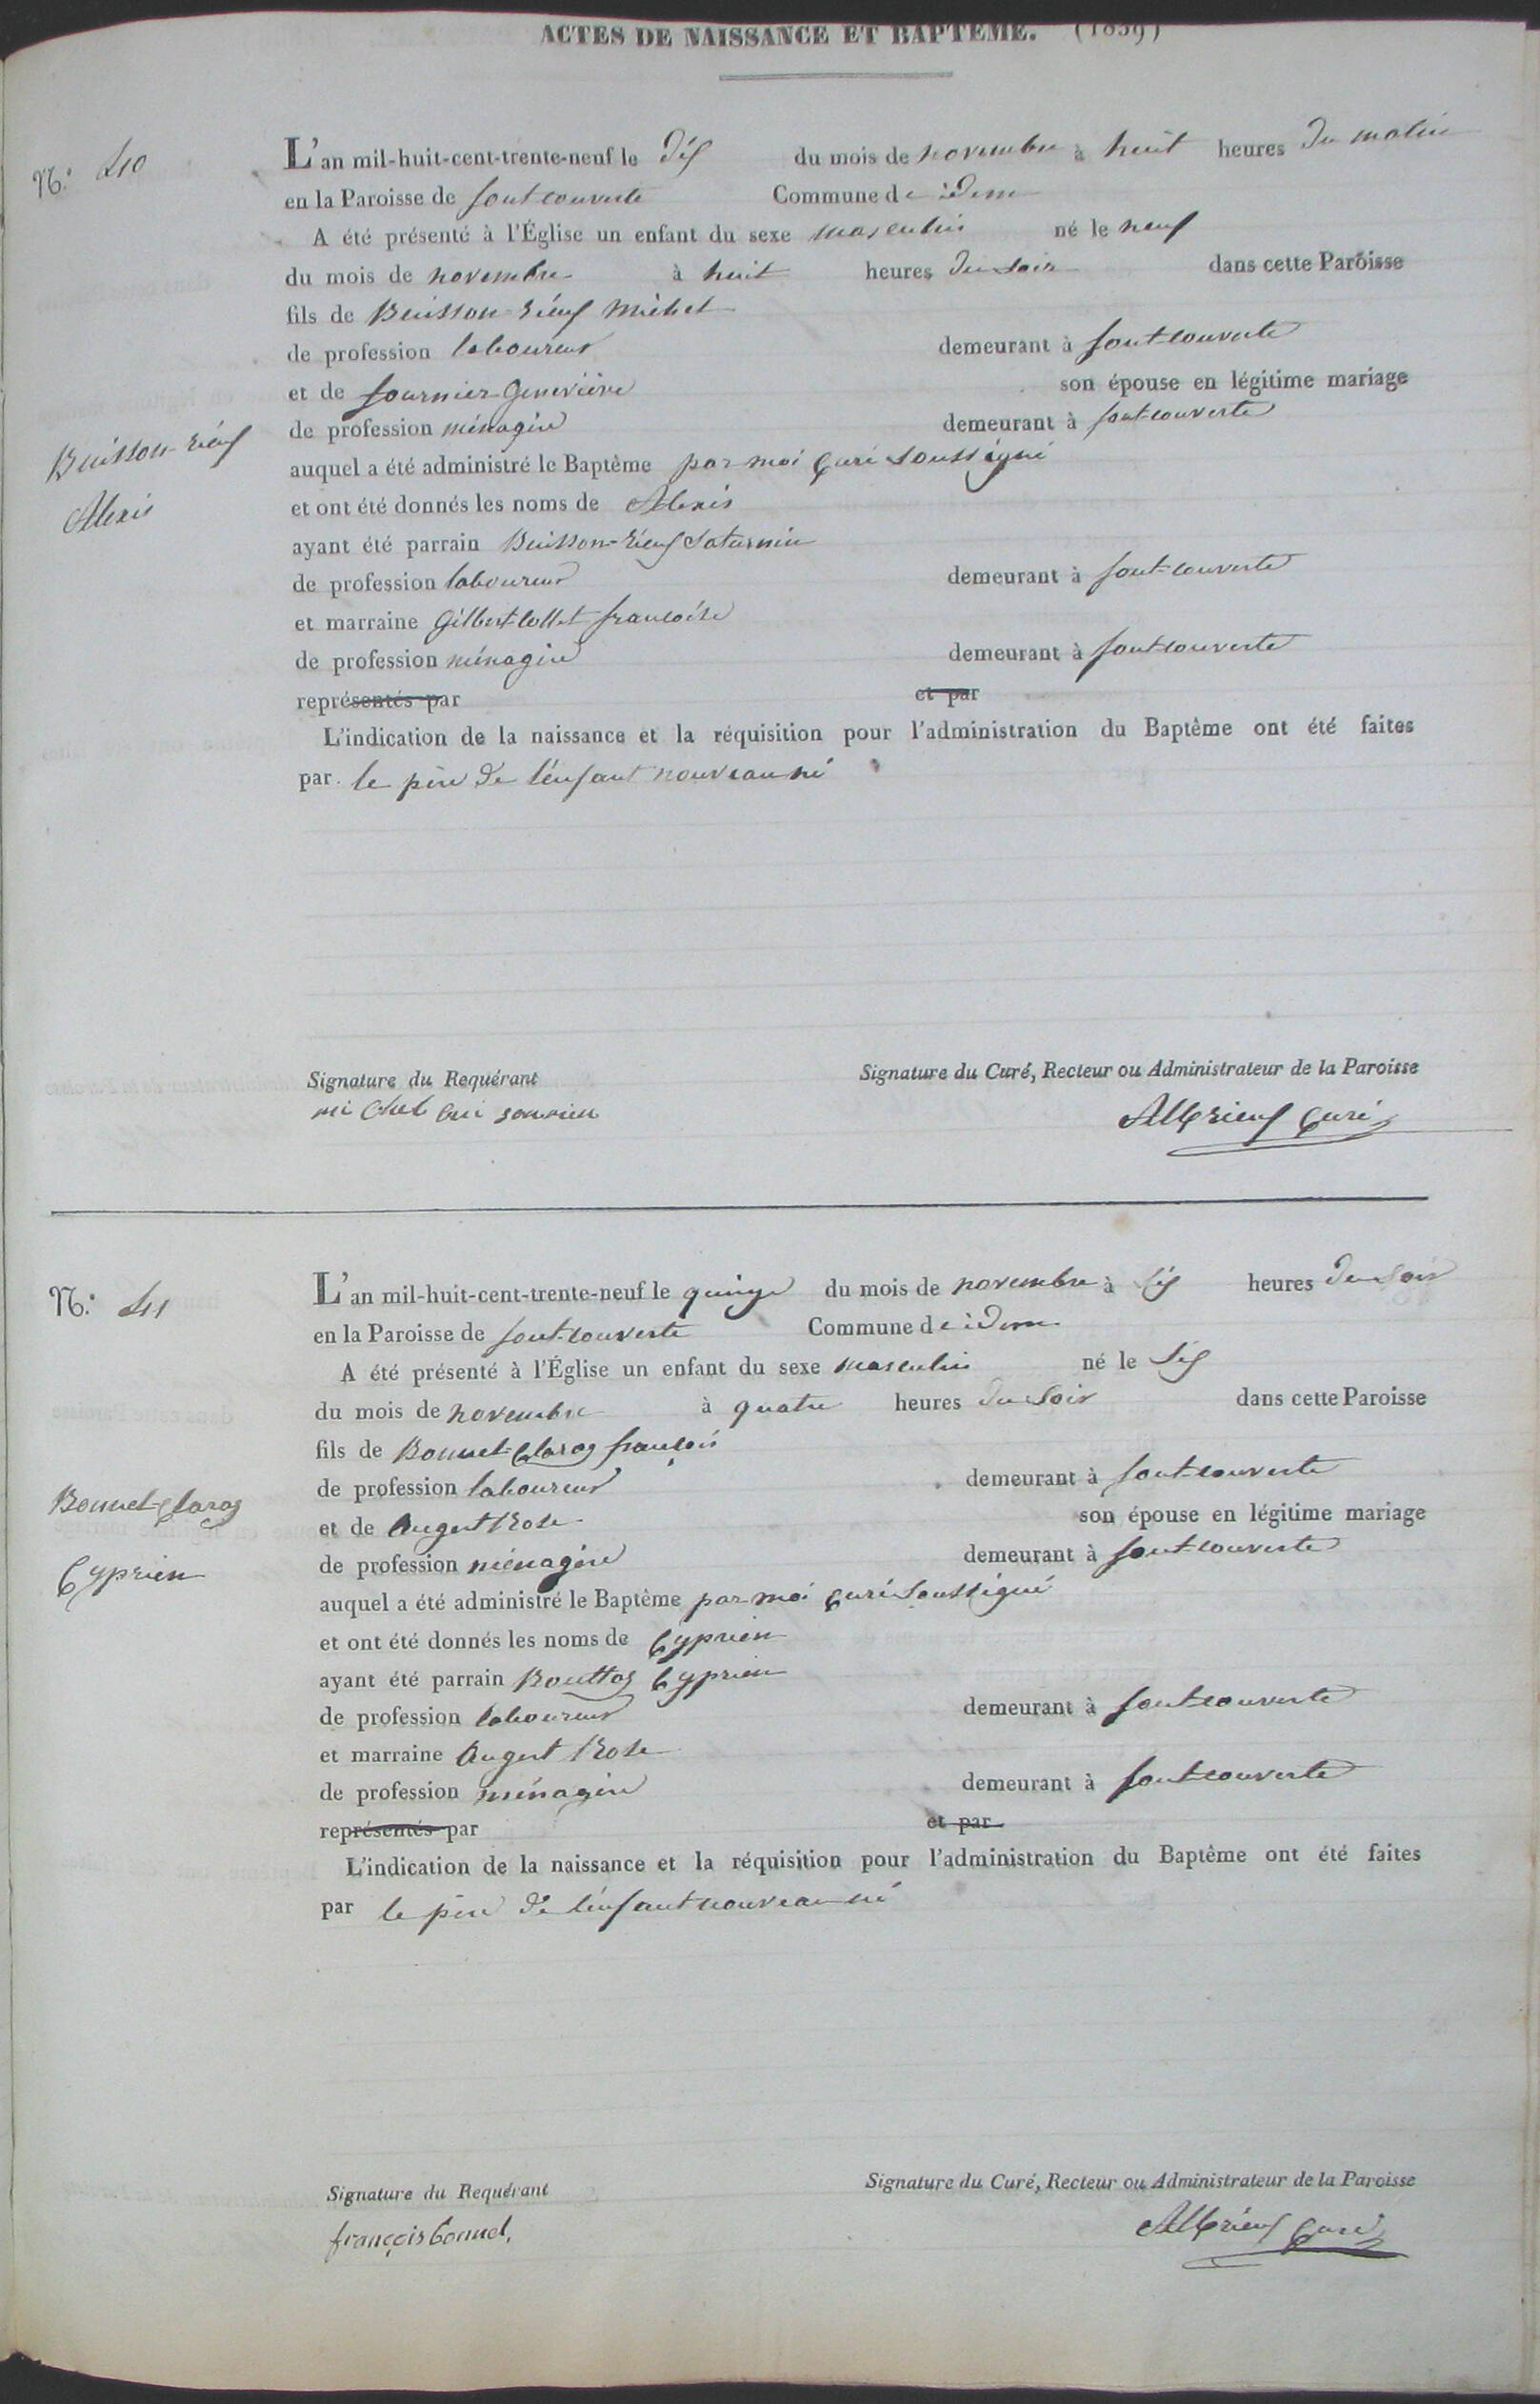 ACTES DE NAISSANCE ET BAPTÊME. (1839)
N.° 40
L'an mil-huit-cent-trente-neuf le dix du mois de novembre à huit heures du matin
en la Paroisse de fontcouverte Commune de idem
A été présenté à l'Église un enfant du sexe masculin né le neuf
du mois de novembre à huit heures du soir dans cette Paroisse
fils de Buisson-rieuf michel
de profession laboureur demeurant à fontcouverte
et de fournier Geneviève son épouse en légitime mariage
de profession ménagère demeurant à fontcouverte
Buisson-rieuf
auquel a été administré le Baptême par moi Curé soussigné
Alexis
et ont été donnés les noms de Alexis
ayant été parrain Buisson-rieuf Saturnin
de profession laboureur demeurant à fontcouverte
et marraine Gilbert-collet françoise
de profession ménagère demeurant à fontcouverte
représentés par et par
L'indication de la naissance et la réquisition pour l'administration du Baptême ont été faites
par le père de l'enfant nouveau né
Signature du Requérant Signature du Curé, Recteur ou Administrateur de la Paroisse
mi chel Curé
N.° 41
L'an mil-huit-cent-trente-neuf le quinze du mois de novembre à six heures du soir
en la Paroisse de fontcouverte Commune de idem
A été présenté à l'Église un enfant du sexe masculin né le
du mois de novembre à quatre heures du soir dans cette Paroisse
fils de Bonnet-Claraz françois
de profession laboureur demeurant à fontcouverte
Bonnet-Claraz
et de Augert Rose son épouse en légitime mariage
de profession ménagère demeurant à fontcouverte
Cyprien
auquel a été administré le Baptême par moi Curé soussigné
et ont été donnés les noms de Cyprien
ayant été parrain Bouttaz Cyprien
de profession laboureur demeurant à fontcouverte
et marraine Augert Rose
de profession ménagère demeurant à fontcouverte
représentés par et par
L'indication de la naissance et la réquisition pour l'administration du Baptême ont été faites
par le père de l'enfant nouveau né
Signature du Requérant Signature du Curé, Recteur ou Administrateur de la Paroisse
françois bonnet, Curé